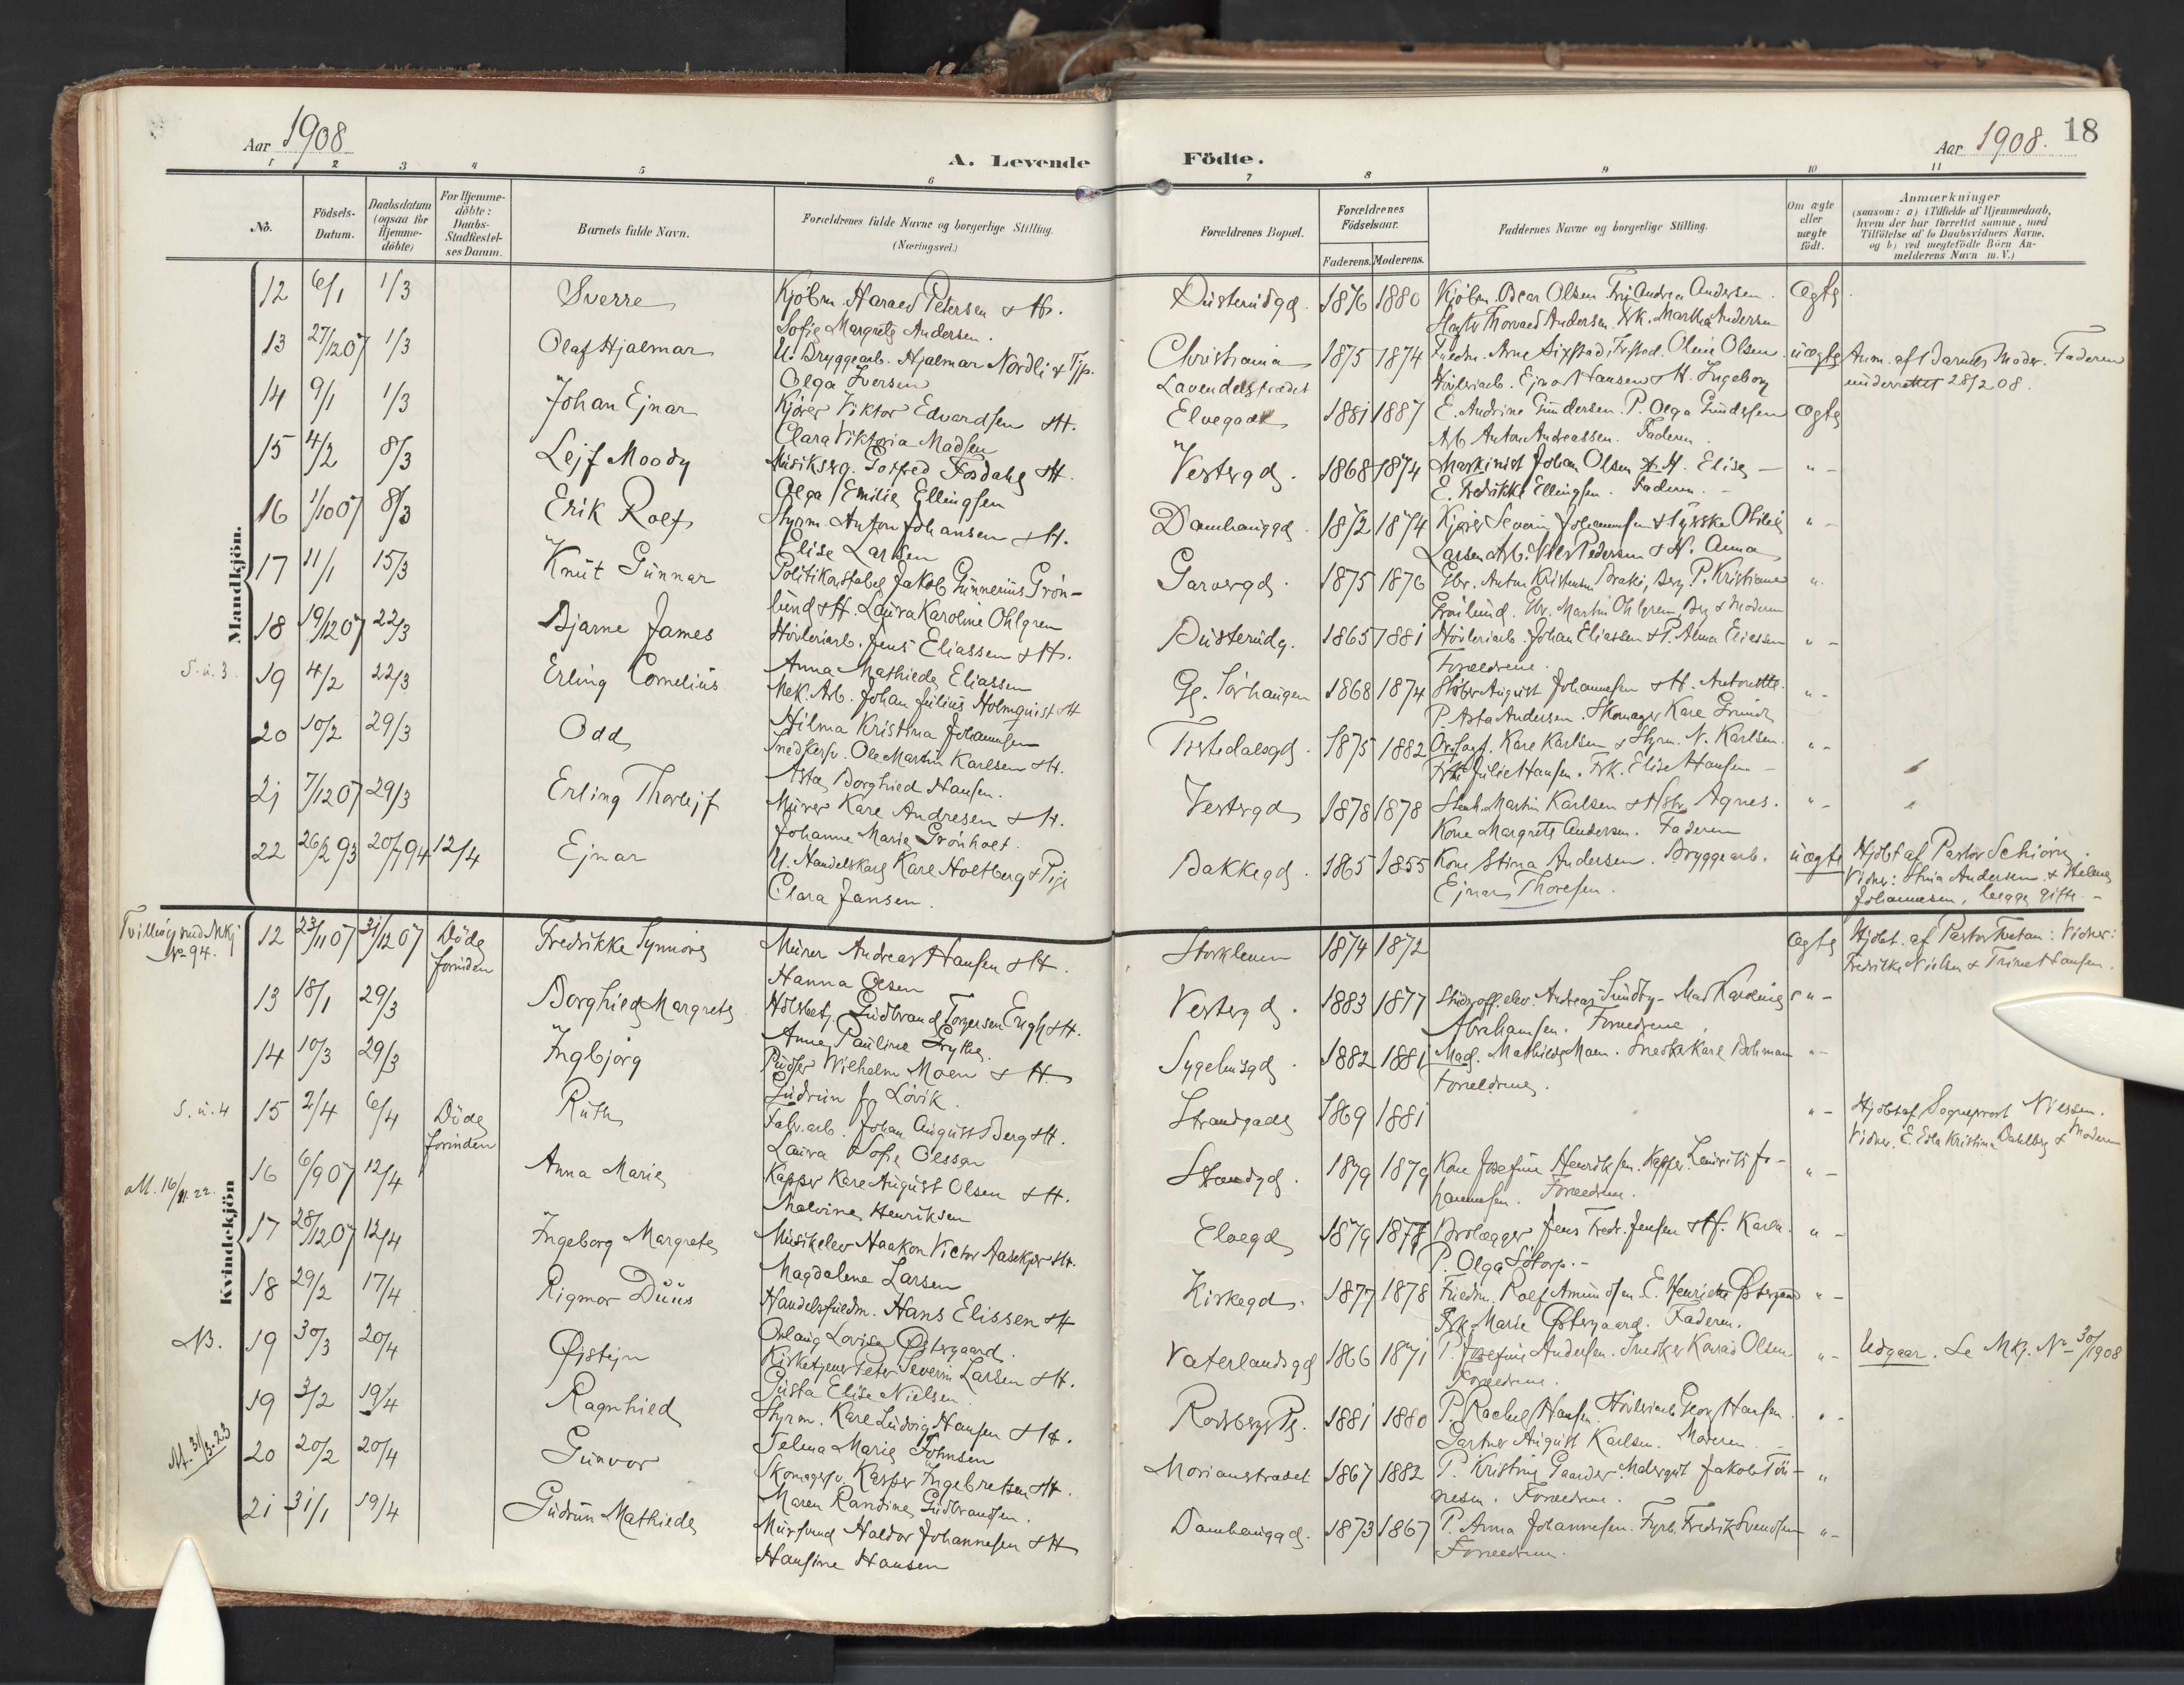 18
Aar 1908
Aar 1908.
A. Levende Födte.
1 2 3 4 5 6 7 8 9 10 11
No.
Födsels-
Datum.
Daabsdatum
(ogsaa for
Hjemme-
döbte)
For Hjemme-
döbte:
Daabs-
Stadfæstel-
ses Datum.
Barnets fulde Navn.
Forældrenes fulde Navne og borgerlige Stilling.
(Næringsvei.)
Forældrenes Bopæl.
Forældrenes
Födselsaar.
Faderens. Moderens.
Faddernes Navne og borgerlige Stilling.
Om ægte
eller
uægte
födt.
Anmærkninger
(saasom: a) i Tilfælde af Hjemmedaab,
hvem der har forrettet samme, med
Tilföielse af to Daabsvidners Navne.
og b) ved uægtefödte Börn An-
melderens Navn m. V.)
Mandkjön.
12 6/1 1/3 Sverre Kjöbm. Harald Petersen & H. 1876 1880 Kjöbm. Oscar Olsen. Andrea Andersen. Ægte
Sofie Margrete Andersen. Thorvald Andersen. Frk. Martha Andersen
13 27/12 07 1/3 Olaf Hjalmar U. Bryggearb. Hjalmar Nordli & Pige Christiania 1875 1874 Olsen. uægte Anm. af Barnets Moder. Faderen
Olga Iversen Lavendelstrædet Hövleriarb. Ejnar Hansen & H. Ingeborg underrettet 28/2 08.
14 9/1 1/3 Johan Ejnar Kjører Viktor Edvardsen & H. Elvegade 1881 1887 E. Andrine Gundersen. P. Olga Gundersen Ægte
Clara Viktoria Madsen Arb. Anton Andreassen. Faderen.
15 4/2 8/3 Lejf Moody Fosdahl & H. Vestergd. 1868 1874 Maskinist Johan Olsen & H. Elise " -
Olga Emilie Ellingsen E. Fredrikke Ellingsen. Faderen.
16 1/10 07 8/3 Erik Rolf Styrm. Anton Johansen & H. Damhauggd. 1872 1874 Kjører Severin Johannesen " -
Elise Larsen Larsen Arb. Nils Pedersen & H. Anna
17 11/1 15/3 Knut Gunnar Politikonstabel Jakob Gunnerius Grön- Garvergd. 1875 1876 P. Kristiane "
lund & H. Laura Karoline Ohlgren Grönlund. Martin Ohlgren, & Moderen
18 19/12 07 22/3 Bjarne James Hövleriarb. Jens Eliassen & H. 1865 1881 Hövleriarb. Johan Eliassen & P. Alma Eliassen " -
Anna Mathilde Eliassen Forældrene.
S. u. 3
19 4/2 22/3 Erling Cornelius Mek. Arb. Johan Julius Holmquist & H 1868 1874 Støber August Johannesen & H. Antonette. " -
Hilma Kristina Johannesen P. Asta Andersen. Skomager Karl
20 10/2 29/3 Odd Ole Martin Karlsen & H. Tistedalsgd. 1875 1882 Karl Karlsen & Styrm. N. Karlsen. " -
Asta Borghild Hansen. Frk. Julie Hansen. Frk. Elise Hansen
21 7/12 07 29/3 Erling Thorlejf Murer Karl Andresen & H. Vestergd 1878 1878 Martin Karlsen & Agnes. " -
Johanne Marie Grönholt. Kone Margrete Andersen. Faderen
22 26/2 93 20/7 94 12/4 Ejnar U. Handelskarl Karl Holtberg & Pige Bakkegd. 1865 1855 Kone Stina Andersen. Bryggearb. uægte Hjdbt af Pastor Schiörn.
Clara Jansen. Ejnar Thoresen. Vidner: Stina Andersen & Helene
Johannesen, begge gifte. -
Kvindekjön
Tvilling med Mkj
No 94.
12 23/11 07 31/12 07 Döde Fredrikke Synnöve Murer Andreas Hansen & H. Storkleven 1874 1872 Ægte Hjdbt. af Pastor Tvetan: Vidner:
forinden Hanna Olsen Fredrikke Nielsen & Trine Hansen.
13 18/1 29/3 Borghild Margrete Gudbrand Torgersen Engh & H. Vestergd. 1883 1877 Andreas Sundby - Mad. Karoline " -
Anne Pauline Frykne. Abrahamsen. Forældrene.
14 10/3 29/3 Ingbjörg Pudser Wilhelm Moen & H. Sygehusgd. 1882 1881 Mad. Mathilde Moen. Snedker Karl Bohman " -
Gudrun f. Lövik. Forældrene.
S. u. 4
15 2/4 6/4 Döde Ruth Fabr.arb. Johan August Berg & H. Strandgade 1869 1881 " - Hjdbt af Sogneprest Nilssen.
forinden Laura Sofie Olsson Vidner. E. Edla Kristina Dahlberg & Moderen
M. 16/11. 22.
16 6/9 07 12/4 Anna Marie Karl August Olsen & H. Strandgd. 1879 1879 Kone Josefine Henriksen. Lauritz Jo- " -
Malvine Henriksen hannesen. Forældrene.
17 28/12 07 12/4 Ingeborg Margrete Musikelev Haakon Victor Aasekjær & H. Elvegd. 1879 1877 Brolægger Jens Fredr. Jensen & H. Karen. " -
Magdalene Larsen P. Olga Storp. -
18 29/2 17/4 Rigmor Duus Handelsfuldm. Hans Elissen & H Kirkegd. 1877 1878 Fuldm. Rolf Amundsen. E. Henriette Østergaard " -
Østergaard. Frk. Marie Østergaard. Faderen.
NB. 19 30/3 20/4 Øistejn Kirketjener Peter Severin Larsen & H. Vaterlandsgd 1866 1871 P. Josefine Andersen. Snedker Konrad Olsen. " - Udgaar. Se Mkj. No 30/1908
Gusta Elise Nielsen. Forældrene.
19 3/2 19/4 Ragnhild Styrm. Karl Ludvig Hansen & H. Rödsberg Pl. 1881 1880 P. Rachel Hansen. Hövleriarb. Georg Hansen. " -
Selma Marie Johnsen Gartner August Karlsen. Moderen.
M. 31/3-23
20 20/2 20/4 Gunvor Skomagersv. Kasper Ingebretsen & H. Morianstrædet 1867 1882 P. Kristine Gaarder. Jakob Tön- "
Maren Randine Gudbrandsen. nesen. Forældrene.
21 31/1 19/4 Gudrun Mathilde Mursvend Haldor Johannesen & H Damhauggd. 1873 1867 P. Anna Johannesen. Fyrb. Fredrik Svendsen " -
Hansine Hansen Forældrene.